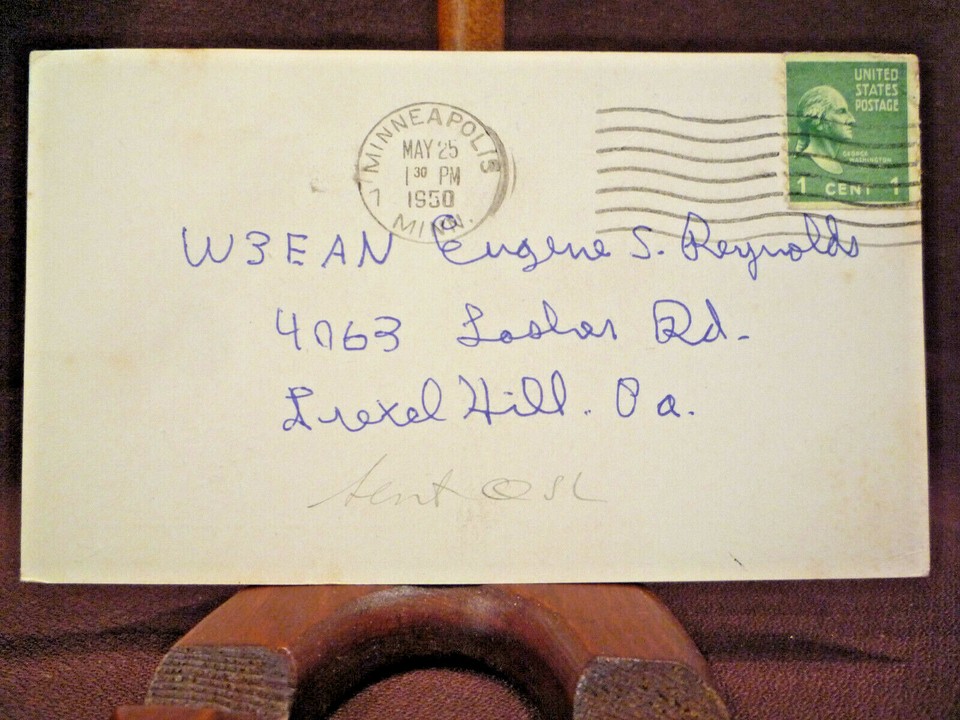 MINNEAPOLIS
MAY 25
1 30 PM
1950
1
MINN.
UNITED
STATES
POSTAGE
GEORGE
WASHINGTON
1 CENT 1
W3EAN Eugene S. Reynolds
4063 Rd.
Drexel Hill. Pa.
sent QSL